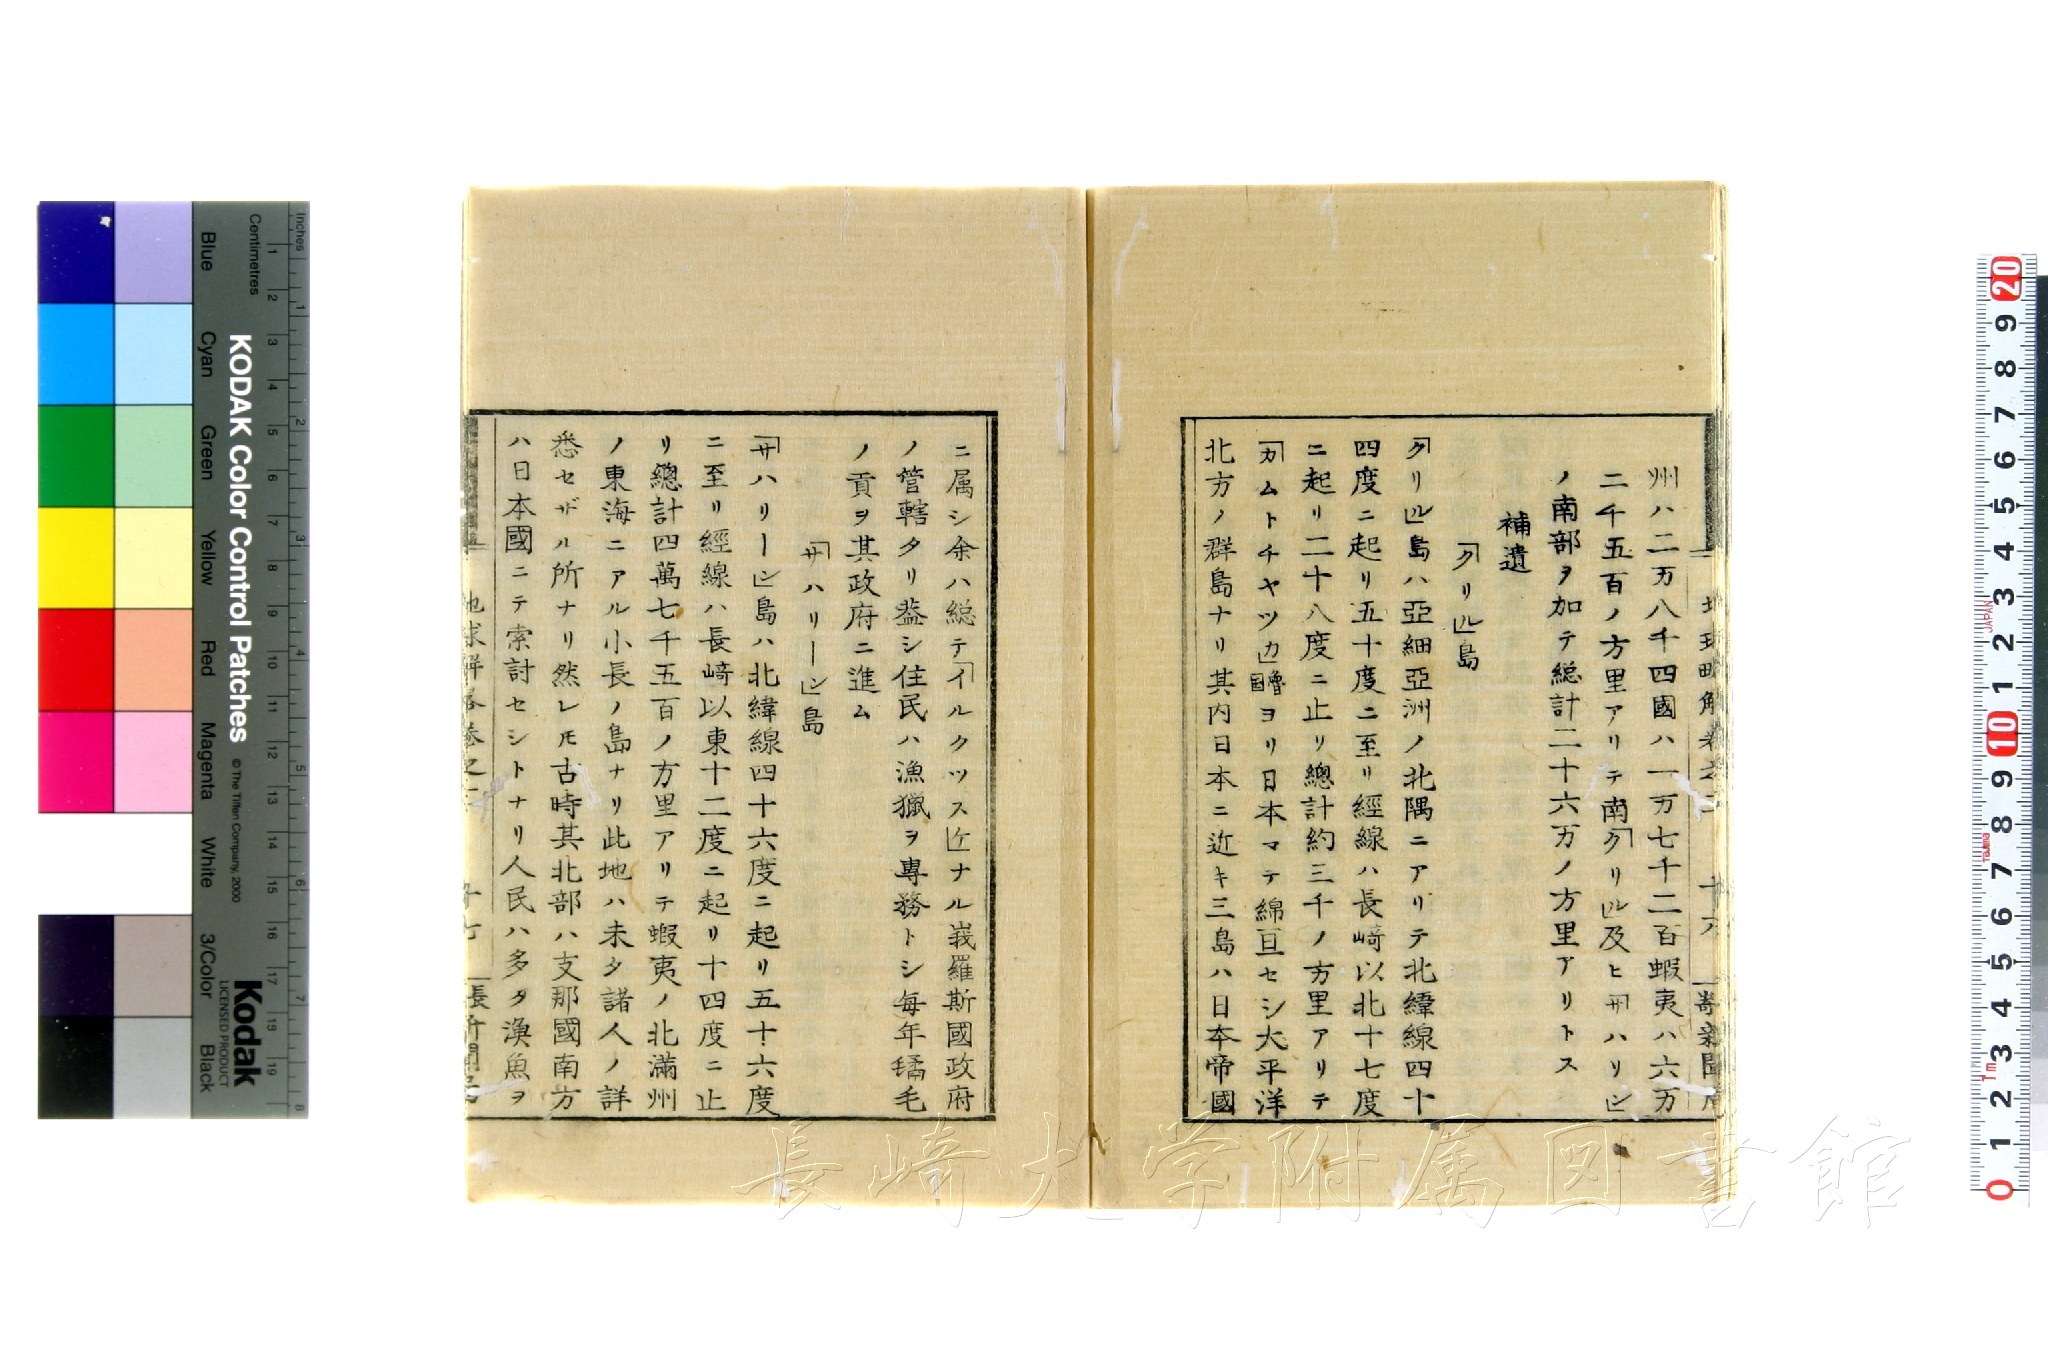 州ハ二万八千四國ハ一万七千二百蝦夷ハ六万
二千五百ノ方里アリテ南「クリル」及ヒ「サハリン」
ノ南部ヲ加テ総計二十六万ノ方里アリトス
補遺
「クリル」島
「クリル」島ハ亞細亞洲ノ北隅ニアリテ北緯線四十
四度ニ起リ五十度ニ至リ經線ハ長崎以北十七度
ニ起リ二十八度ニ止リ總計約三千ノ方里アリテ
「カムトチヤツカ」魯國ヨリ日本マテ綿亘セシ大平洋
北方ノ群島ナリ其内日本ニ近キ三島ハ日本帝國
ニ属シ余ハ総テ「イルクツスケ」ナル峩羅斯國政府
ノ管轄タリ蓋シ住民ハ漁獵ヲ專務トシ毎年 毛
ノ貢ヲ其政府ニ進ム
「サハリーン」島
「サハリーン」島ハ北緯線四十六度ニ起リ五十六度
ニ至リ經線ハ長崎以東十二度ニ起リ十四度ニ止
リ總計四萬七千五百ノ方里アリテ蝦夷ノ北滿州
ノ東海ニアル小長ノ島ナリ此地ハ未タ諸人ノ詳
悉セザル所ナリ然レ𪜈古時其北部ハ支那國南方
ハ日本國ニテ索討セシトナリ人民ハ多タ漁魚ヲ
長崎大学附属図書館
KODAK Color Control Patches
© The Tiffen Company, 2000
Kodak
LICENSED PRODUCT
Inches
Centimetres
Blue
Cyan
Green
Yellow
Red
Magenta
White
3/Color
Black